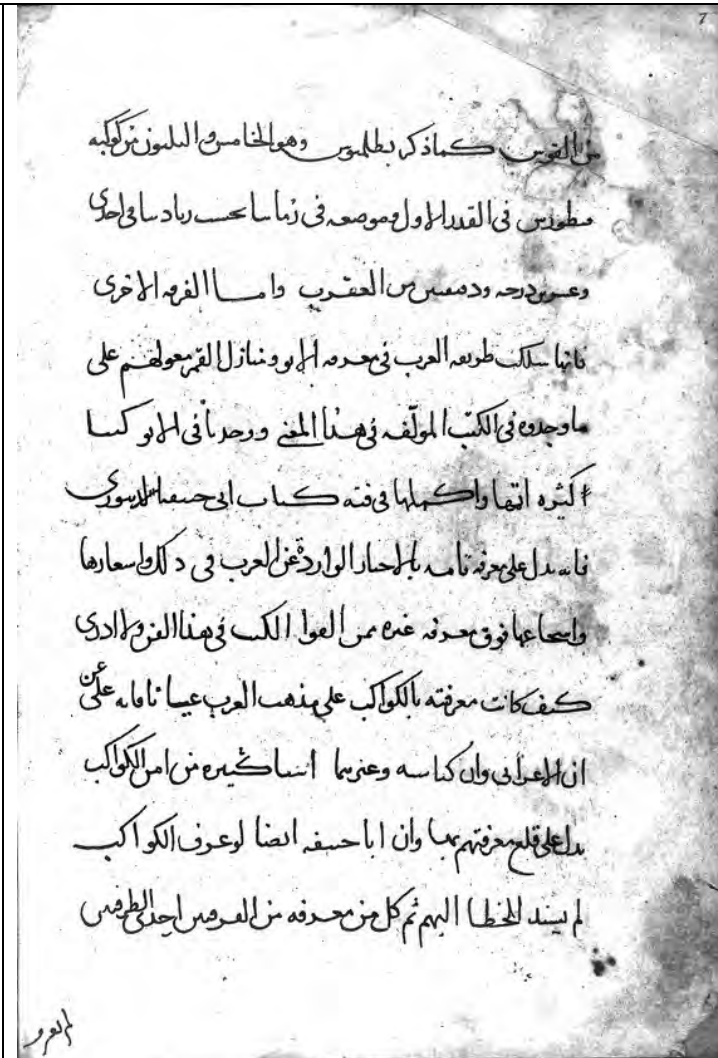 7
من القوس كما ذكر بطلميوس وهو الخامس والثلثون من كوكبة
قنطورس في القدر الاول وموضعه في زماننا بحسب زيادتنا في احدى
وعشرين درجة ودقيقتين من العقرب واما الفرقة الاخرى
فانها سلكت طريقة العرب في معرفة الانوا ومنازل القمر معولهم على
ما وجدوه في الكتب المولّفة في هذا المعنى ووجدنا في الانوا كتبا
كثيره اتمها واكملها في فنه كتاب ابي حنيفة الدينوري
فانه يدل على معرفة تامة بالاخبار الواردة عن العرب في ذلك واشعارها
واسجاعها فوق معرفة غيره ممن الفوا الكتب في هذا الفن ولا ادرى
كيف كانت معرفته بالكواكب على مذهب العرب عيانا فانه عن
ابن الاعرابي وابن كناسه وغيرهما اشيا كثيره من امر الكواكب
يدل على قلة معرفتهم بها وان ابا حنيفه ايضا لو عرف الكواكب
لم يسند الخطا اليهم ثم كل من معرفه من الفرقتين احدى الطريقين
لم يعرف